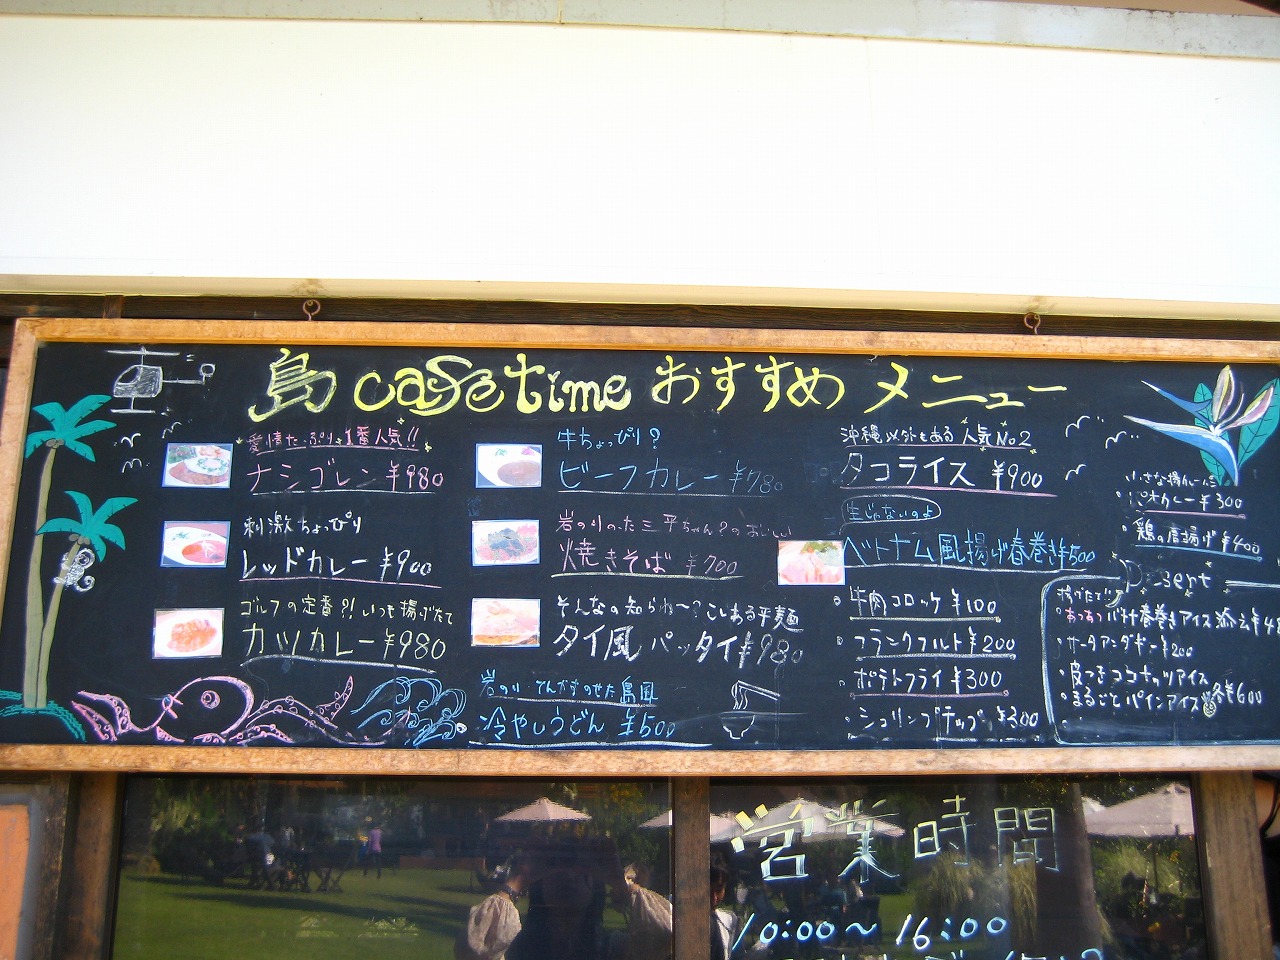 島 cafe time おすすめ メニュー
愛情たっぷり 1番人気!!
ナシゴレン ¥980
刺激ちょっぴり
レッドカレー ¥900
ゴルフの定番?! いつも揚げたて
カツカレー ¥980
牛ちょっぴり?
ビーフカレー ¥780
岩のりのった三平ちゃん?の
焼きそば ¥700
そんなの知らね〜?こしある平麺
タイ風 パッタイ ¥980
岩のり てんかすのせた島風
冷やしうどん ¥500
沖縄以外もある 人気No2
タコライス ¥900
生じゃないのよ
ベトナム風揚げ春巻き ¥500
牛肉コロッケ ¥100
フランクフルト ¥200
ポテトフライ ¥300
シュリンプチップ ¥300
カレー ¥300
鶏の唐揚げ ¥400
Dessert
揚げたて
あつあつバナナ春巻きアイス添え
サーターアンダギー ¥200
皮つきココナッツアイス
まるごとパインアイス 各¥600
営業時間
10:00〜16:00